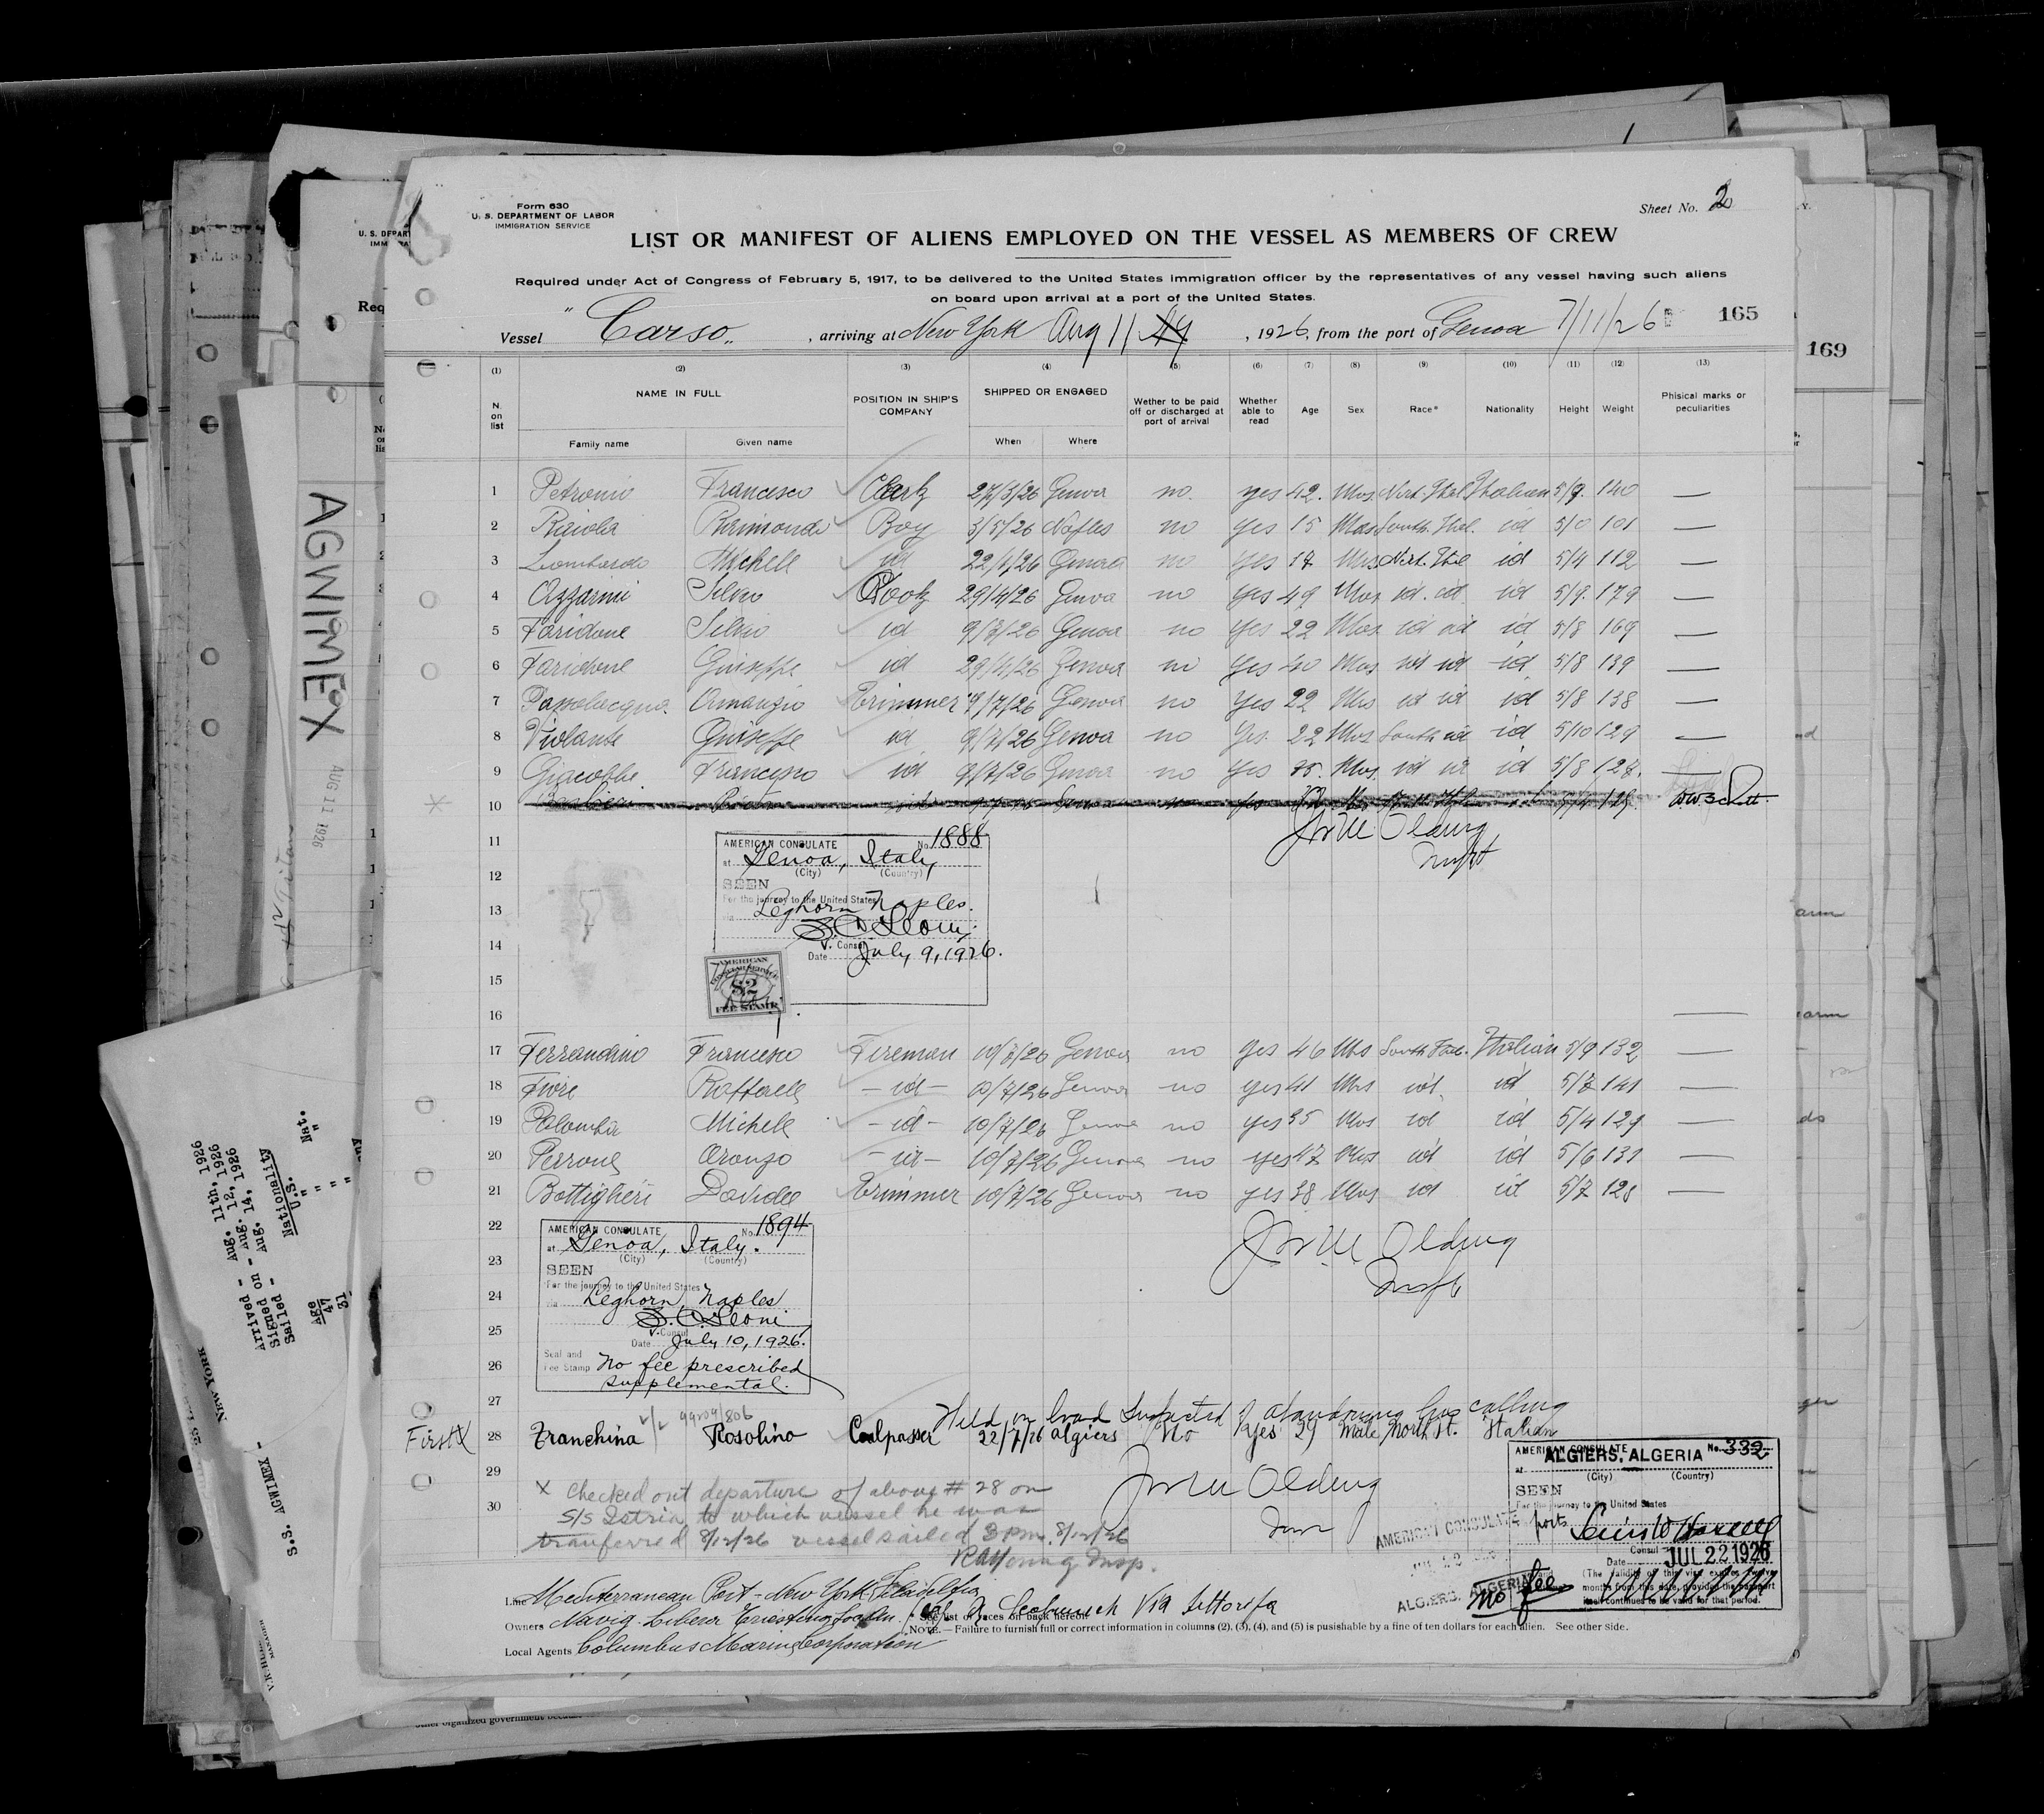 Form 630
U. S. DEPARTMENT OF LABOR
IMMIGRATION SERVICE
Sheet No. 2
LIST OR MANIFEST OF ALIENS EMPLOYED ON THE VESSEL AS MEMBERS OF CREW
Required under Act of Congress of February 5, 1917, to be delivered to the United States immigration officer by the representatives of any vessel having such aliens
on board upon arrival at a port of the United States.
Vessel "Carso", arriving at New York Aug 11, 1926, from the port of Genoa 7/11/26 165
169
(1) (2) (3) (4) (5) (6) (7) (8) (9) (10) (11) (12) (13)
N. on list NAME IN FULL POSITION IN SHIP'S COMPANY SHIPPED OR ENGAGED Wether to be paid off or discharged at port of arrival Whether able to read Age Sex Race* Nationality Height Weight Phisical marks or peculiarities
Family name Given name When Where
1 Petronio Francesco Clerk 27/3/26 Genoa no. yes 42. Mas. Nort. Ital Ithalian 5/9. 140 —
2 Raiola Raimondo Boy 3/5/26 Naples no yes 15 Mas South. Ital. id 5/0 101 —
3 Lombardo Michele id 22/4/26 Genoa no yes 17 Mas Nort. Ital id 5/4 112 —
4 Azzarini Silvio Cook 29/4/26 Genoa no yes 49 Mas. id. id. id 5/9. 179 —
5 Faridone Silvio id 9/7/26 Genoa no yes 22 Mas. id id id 5/8 169 —
6 Faridone Giuseppe id 29/4/26 Genoa no yes 40 Mas id id id 5/8 139 —
7 Passalacqua Amanzio Trimmer 9/7/26 Genoa no yes 22 Mas id id id 5/8 138 —
8 Violante Giuseppe id 9/7/26 Genoa no yes. 22 Mas South id id 5/10 129 —
9 Giacobbe Francesco id 9/7/26 Genoa no yes 25. Mas. id id id 5/8 127. —
10
11
12
13
14
15
16
AMERICAN CONSULATE No. 1888
at Genoa, Italy
(City) (Country)
SEEN
For the journey to the United States
via Leghorn Naples.
V. Consul
Date July 9, 1926.
AMERICAN
CONSULAR SERVICE
$2
FEE STAMP
17 Ferrandino Francesco Fireman 10/7/26 Genoa no yes 46 Mas South Ital. Ithalian 5/9 132 —
18 Fiore Raffaele - id - 10/7/26 Genoa no yes 41 Mas id. id 5/7 141 —
19 Palomba Michele - id - 10/7/26 Genoa no yes 35 Mas id id 5/4 129 —
20 Perrone Oronzo - id - 10/7/26 Genoa no yes 47 Mas id id 5/6 131 —
21 Bottiglieri Davide Trimmer 10/7/26 Genoa no yes 38 Mas id id 5/7 128 —
22
23
24
25
26
27
AMERICAN CONSULATE No. 1894
at Genoa, Italy.
(City) (Country)
SEEN
For the journey to the United States
via Leghorn, Naples.
V. Consul
Date July 10, 1926.
Seal and
Fee Stamp No fee prescribed
supplemental.
Held on board Suspected of abandoning his calling
99209/806
First X 28 Franchina Rosolino Coalpasser 22/7/26 algiers No yes 29 Male North It. Italian
29
30
X Checked out departure of above # 28 on
S/S Istria to which vessel he was
tranferred 8/12/26 vessel sailed 3 P.m. 8/12/26
AMERICAN CONSULATE No. 332
at ALGIERS, ALGERIA
(City) (Country)
SEEN
For the journey to the United States
ports
Consul
Date JUL 22 1926
(The validity of this visa expires twelve
months from this date, provided the passport
itself continues to be valid for that period.
no fee
AMERICAN CONSULATE
ALGIERS, ALGERIA
Line Mediterranean Port - New York
Owners Navig. Libera Triestina
* See list of races on back hereof.
NOTE. — Failure to furnish full or correct information in columns (2), (3), (4), and (5) is pusishable by a fine of ten dollars for each alien. See other side.
Local Agents Columbus Marine Corporation
AGWIMEX
AUG 11 1926
Arrived - Aug. 11th, 1926
Signed on - Aug. 12, 1926
Sailed - Aug. 14, 1926
Age Nationality
47 U.S. Nat.
31 " "
S.S. AGWIMEX -
NEW YORK